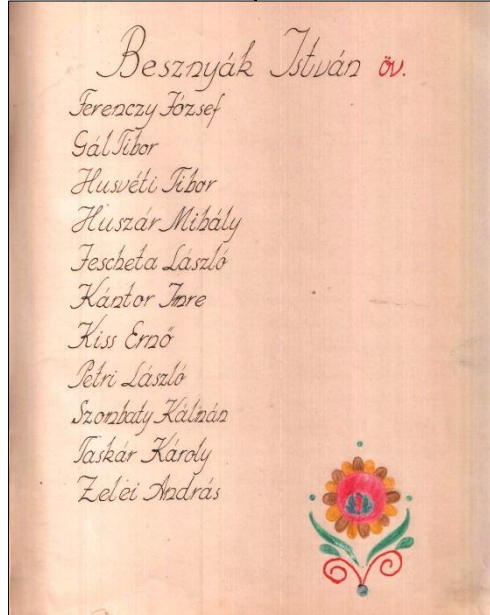 Besznyák István öv.
Ferenczy József
Gál Tibor
Husvéti Tibor
Huszár Mihály
Jescheta László
Kántor Imre
Kiss Ernő
Petri László
Szombaty Kálmán
Taskár Károly
Zelei András